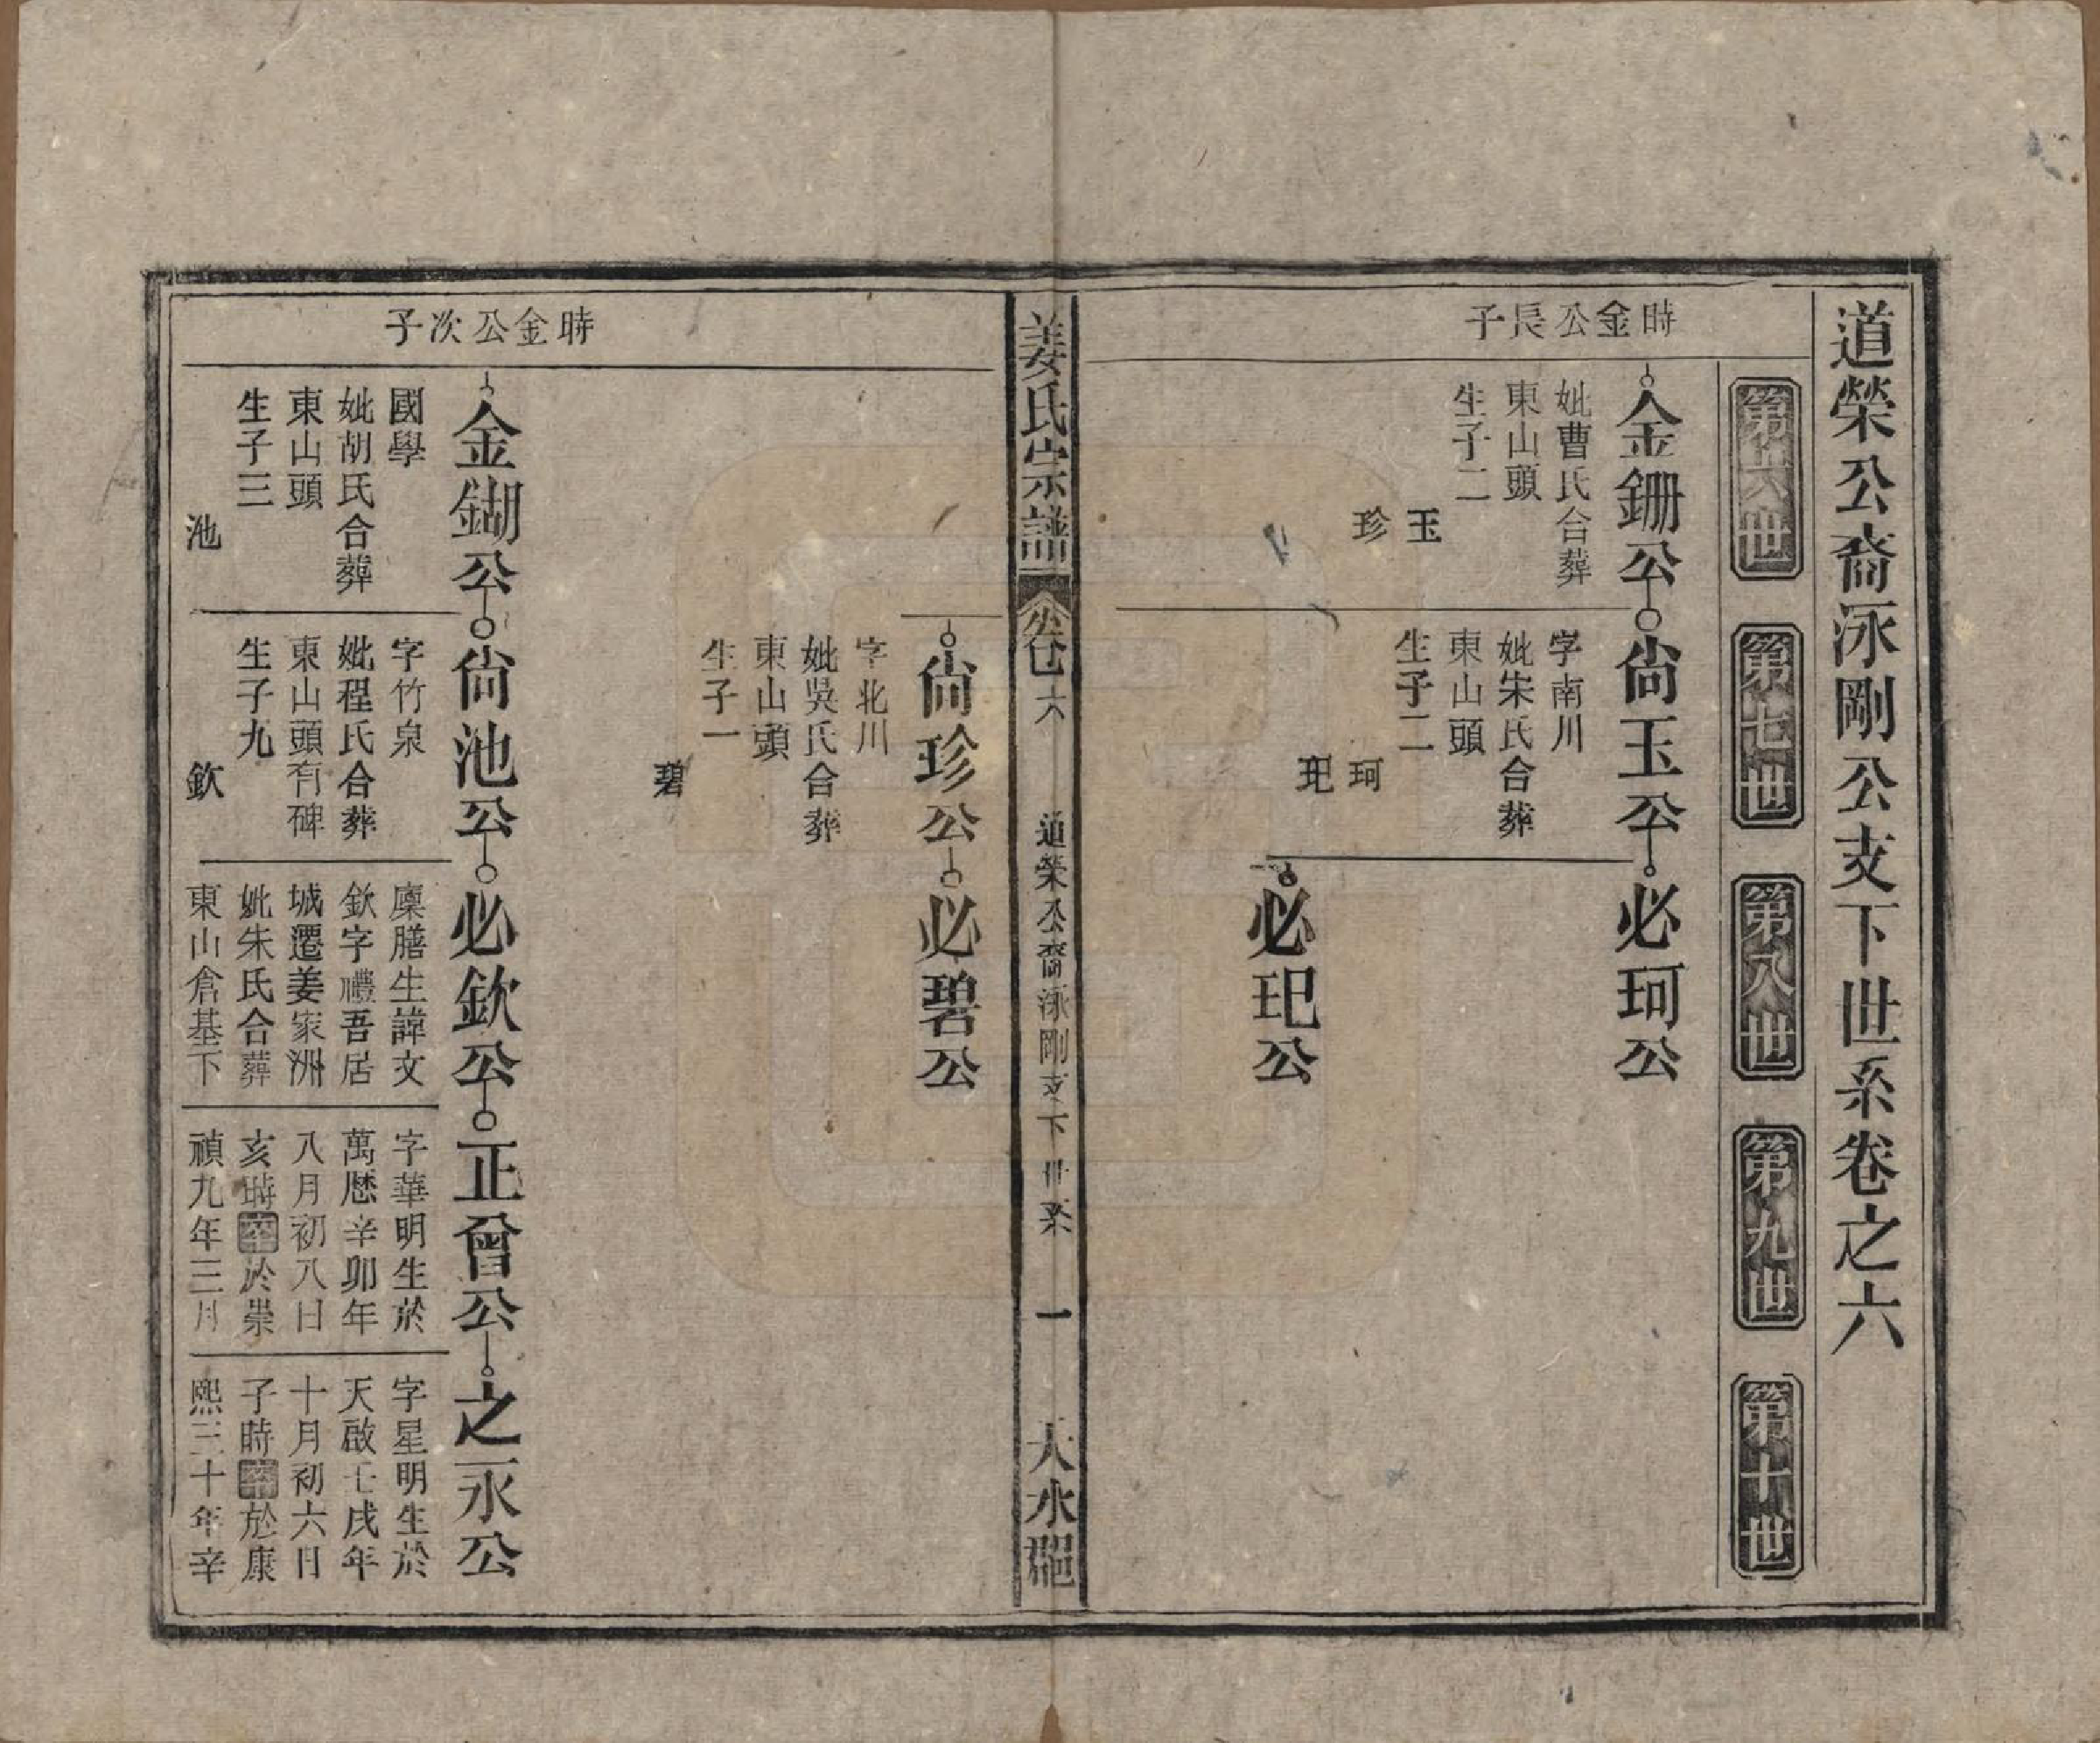 道榮公裔泳剛公支下世系卷之六
第六世
第七世
第八世
第九世
第十世
時金公長子
金鏩公
妣曹氏合葬
東山頭
生子二
玉
珍
尙玉公
字南川
妣朱氏合葬
東山頭
生子二
珂
玘
必珂公
必玘公
姜氏宗譜
卷六
道榮公裔泳剛支下世系
一
天水郡
尙珍公
字北川
妣吳氏合葬
東山頭
生子一
碧
必碧公
時金公次子
金鍸公
國學
妣胡氏合葬
東山頭
生子三
池
尙池公
字竹泉
妣程氏合葬
東山頭有碑
生子九
欽
必欽公
廩膳生諱文
欽字禮吾居
城遷姜家洲
妣朱氏合葬
東山倉基下
正曾公
字華明生於
萬歷辛卯年
八月初八日
亥時卒於崇
禎九年三月
之永公
字星明生於
天啟壬戌年
十月初六日
子時卒於康
熙三十年辛